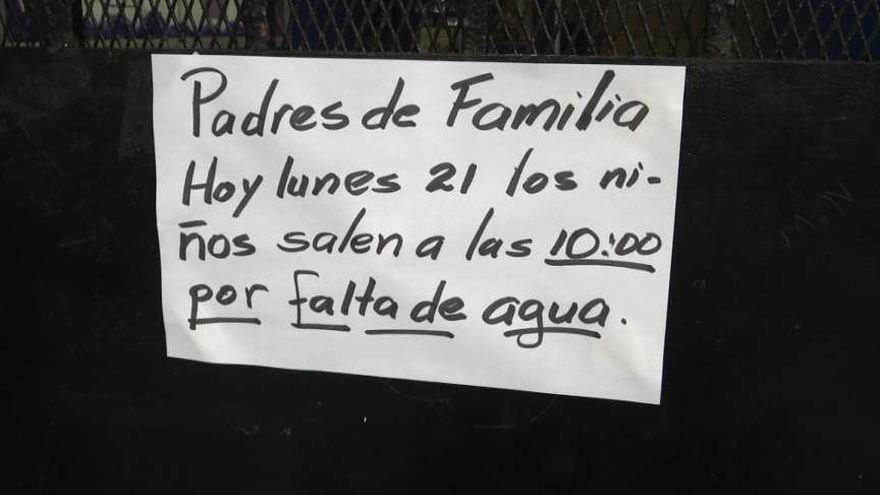 Padres de Familia
Hoy lunes 21 los ni-
ños salen a las 10:00
por falta de agua.